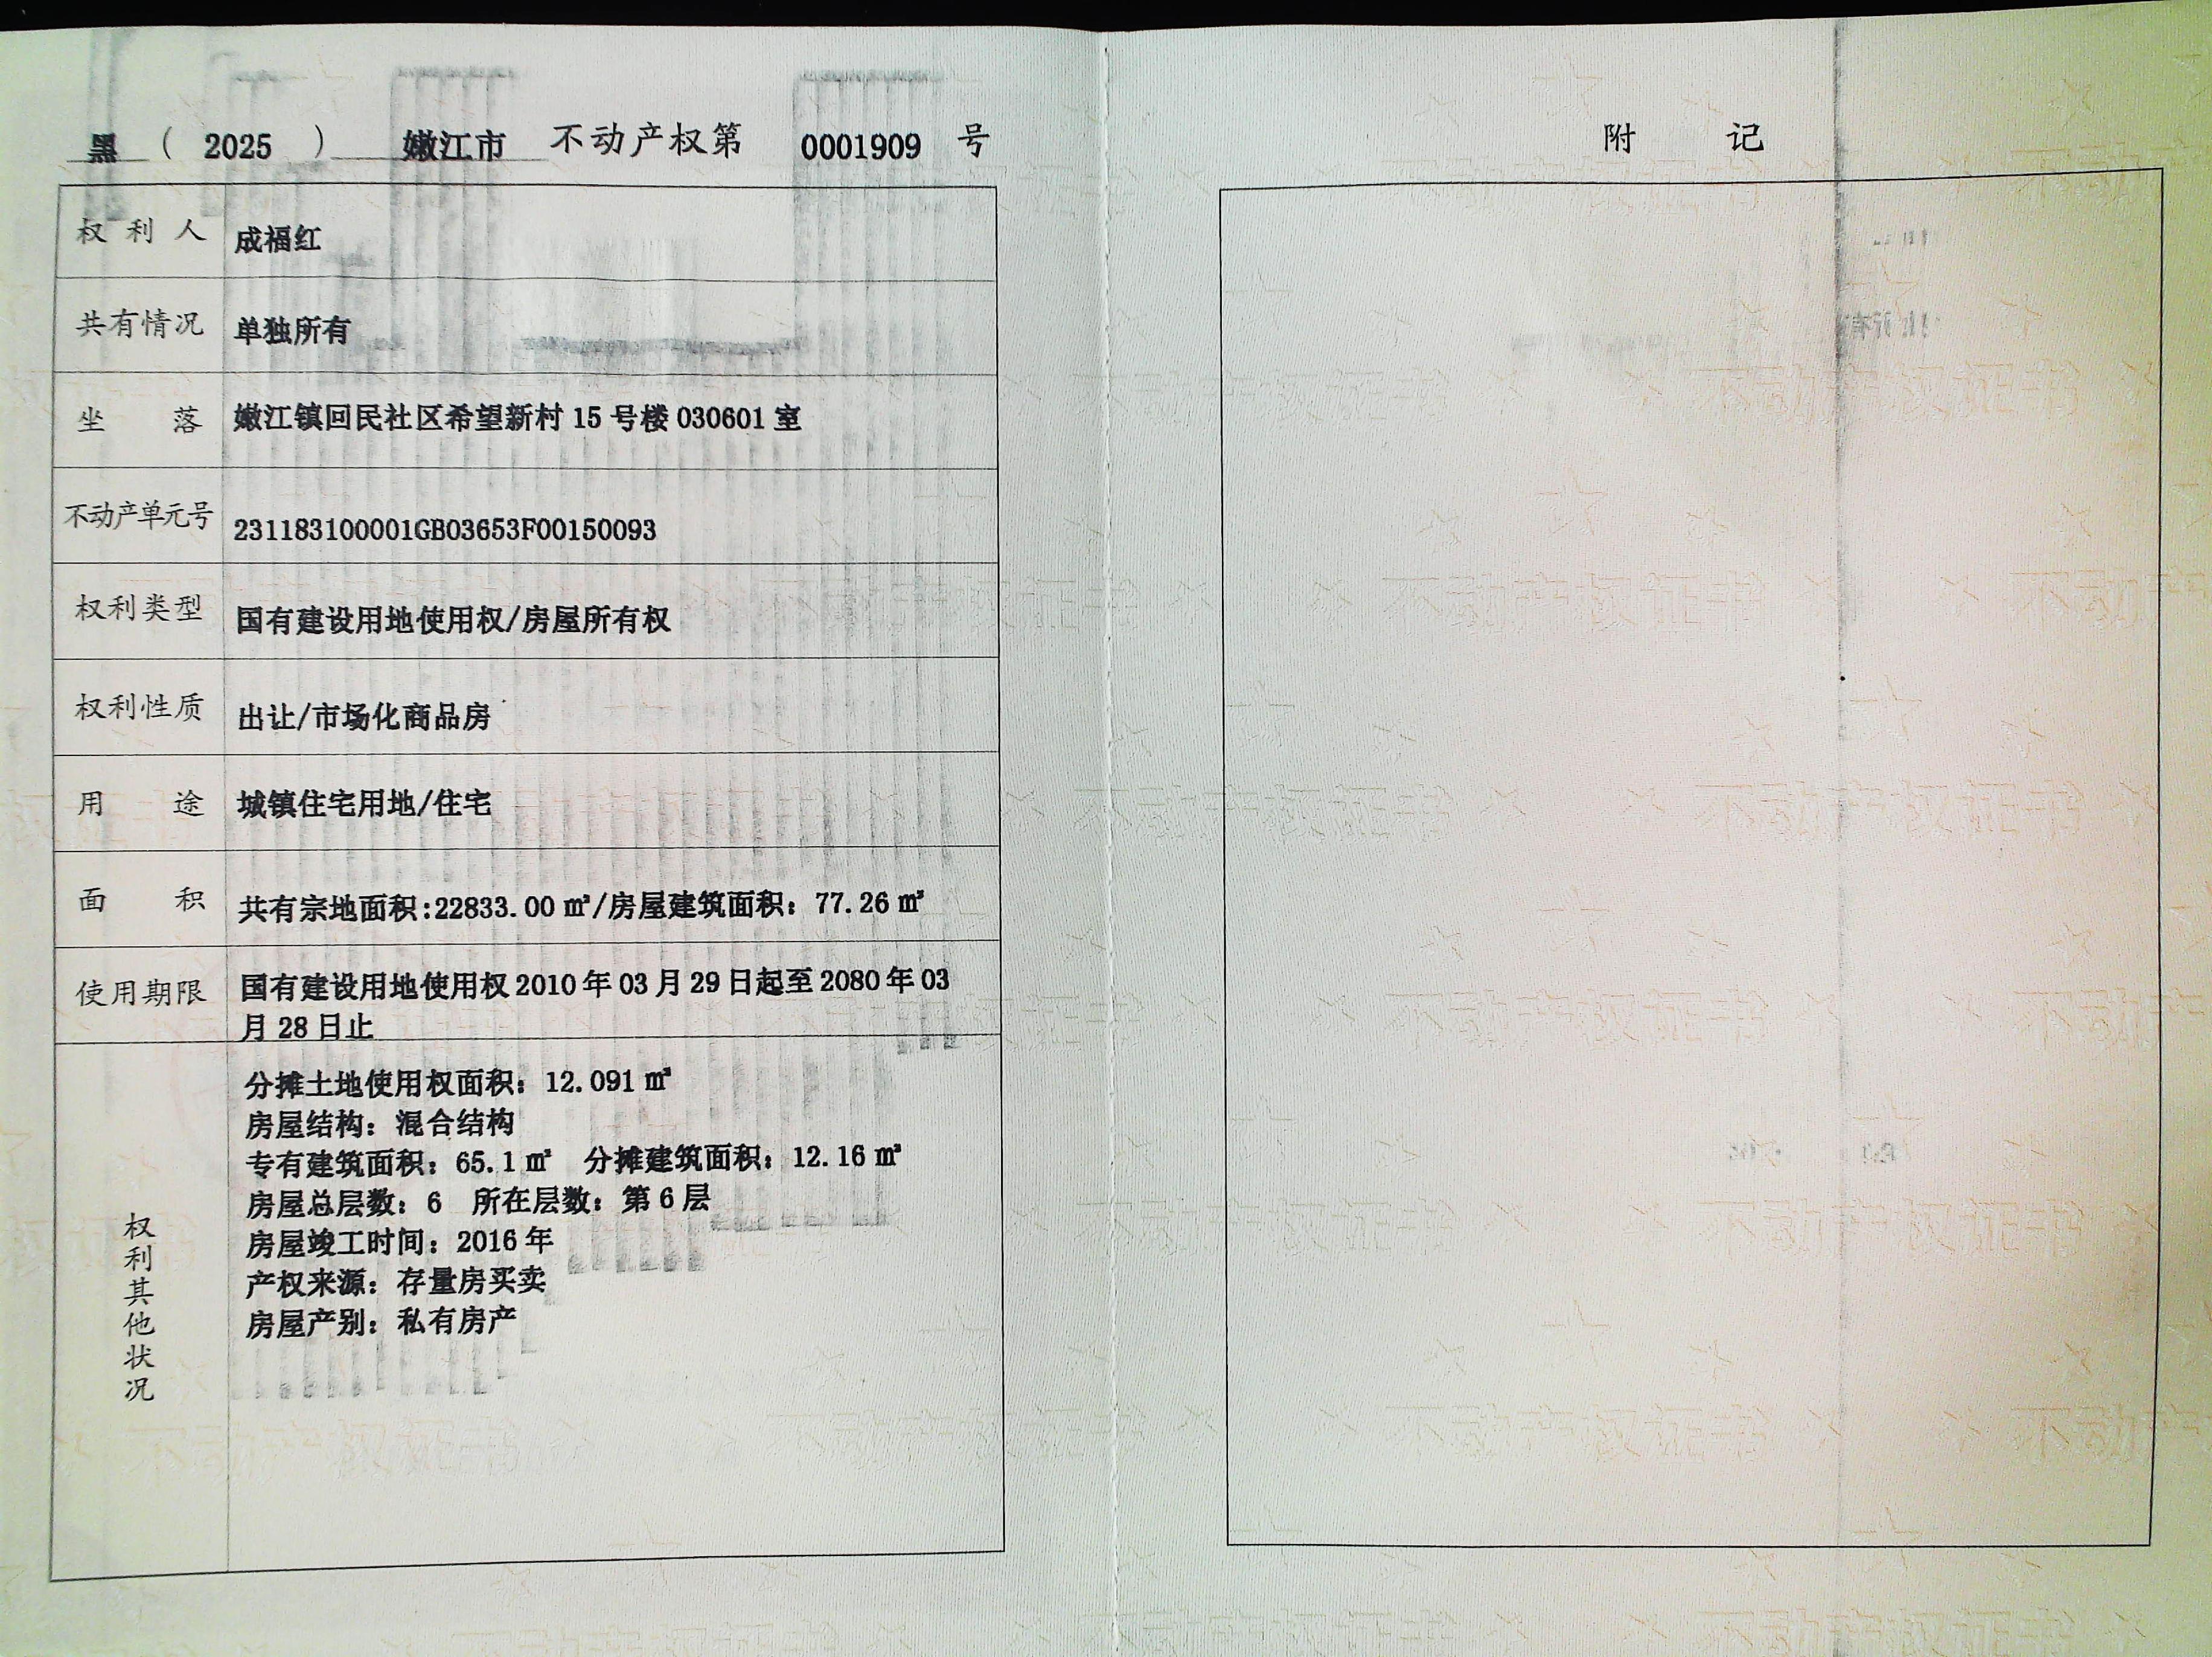 黑 ( 2025 ) 嫩江市 不动产权第 0001909 号
权利人 成福红
共有情况 单独所有
坐落 嫩江镇回民社区希望新村 15 号楼 030601 室
不动产单元号 231183100001GB03653F00150093
权利类型 国有建设用地使用权/房屋所有权
权利性质 出让/市场化商品房
用途 城镇住宅用地/住宅
面积 共有宗地面积:22833.00 ㎡/房屋建筑面积：77.26 ㎡
使用期限 国有建设用地使用权 2010 年 03 月 29 日起至 2080 年 03
月 28 日止
权利其他状况
分摊土地使用权面积：12.091 ㎡
房屋结构：混合结构
专有建筑面积：65.1 ㎡ 分摊建筑面积：12.16 ㎡
房屋总层数：6 所在层数：第 6 层
房屋竣工时间：2016 年
产权来源：存量房买卖
房屋产别：私有房产
附 记